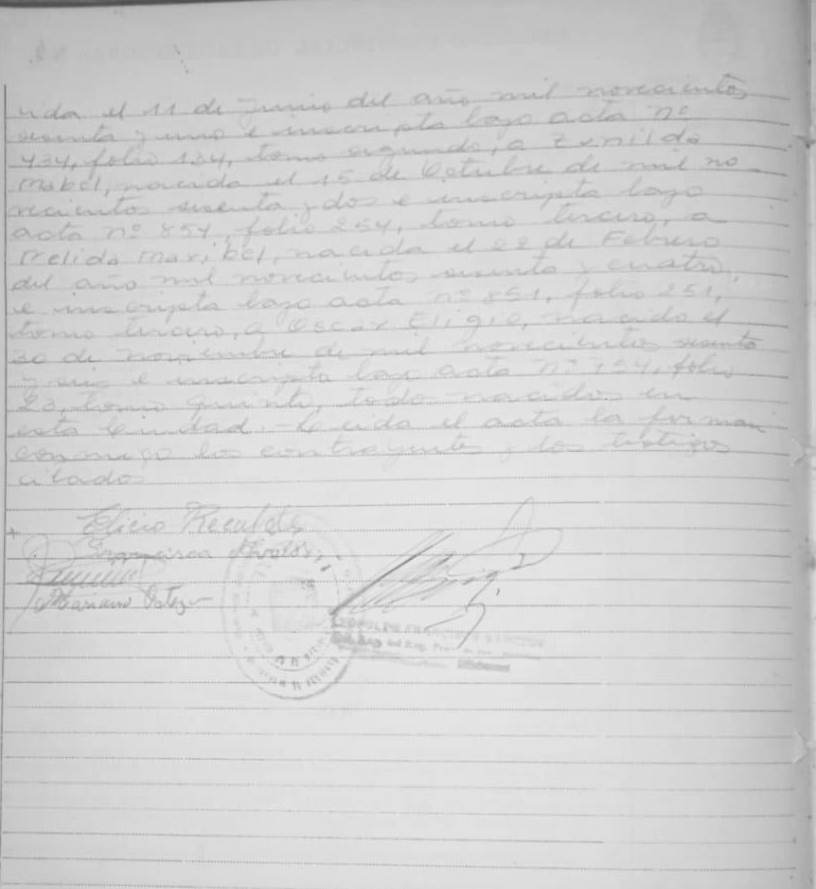 cida el 11 de Junio del año mil novecientos
sesenta y uno e inscripta bajo acta nº
434, folio 134, tomo segundo, a Zenilda
Mabel, nacida el 15 de Octubre de mil no-
vecientos sesenta y dos e inscripta bajo
acta nº 854, folio 254, tomo tercero, a
Melida Maribel, nacida el 22 de Febrero
del año mil novecientos sesenta y cuatro,
e inscripta bajo acta nº 851, folio 251,
tomo tercero, a Oscar Eligio, nacido el
30 de noviembre de mil novecientos sesenta
y seis e inscripta bajo acta nº folio
23, tomo quinto, todo nacidos en
esta Ciudad.- Leida el acta la firman
conmigo los contrayentes y los testigos
citados
Elicio Recalde
Francisca
Mariano Ortega
LEOPOLDO FRANCISCO